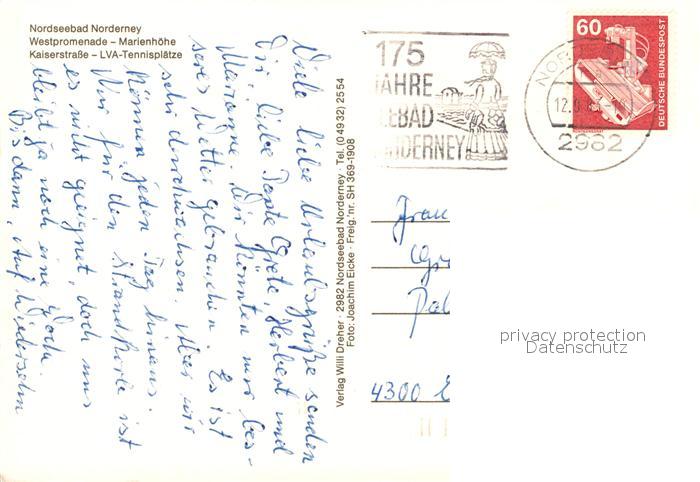 Nordseebad Norderney
Westpromenade – Marienhöhe
Kaiserstraße – LVA-Tennisplätze
Viele liebe Urlaubsgrüße senden
Dir liebe Tante Grete, Herbert und
Marianne. Wir könnten nur bes-
seres Wetter gebrauchen. Es ist
sehr durchwachsen. Aber wir
können jeden Tag hinaus.
Nur für den Strandkorb ist
es nicht geeignet, doch uns
bleibt ja noch eine Woche.
Bis dann, Auf Wiedersehn
Verlag Willi Dreher · 2982 Nordseebad Norderney · Tel. (0 49 32) 25 54
Foto: Joachim Eicke · Freig.'nr. SH 369-1908
175
JAHRE
EEBAD
NDERNEY
60
DEUTSCHE BUNDESPOST
NOR
12.
2982
Frau
Gr
Pal
4300 E
privacy protection
Datenschutz